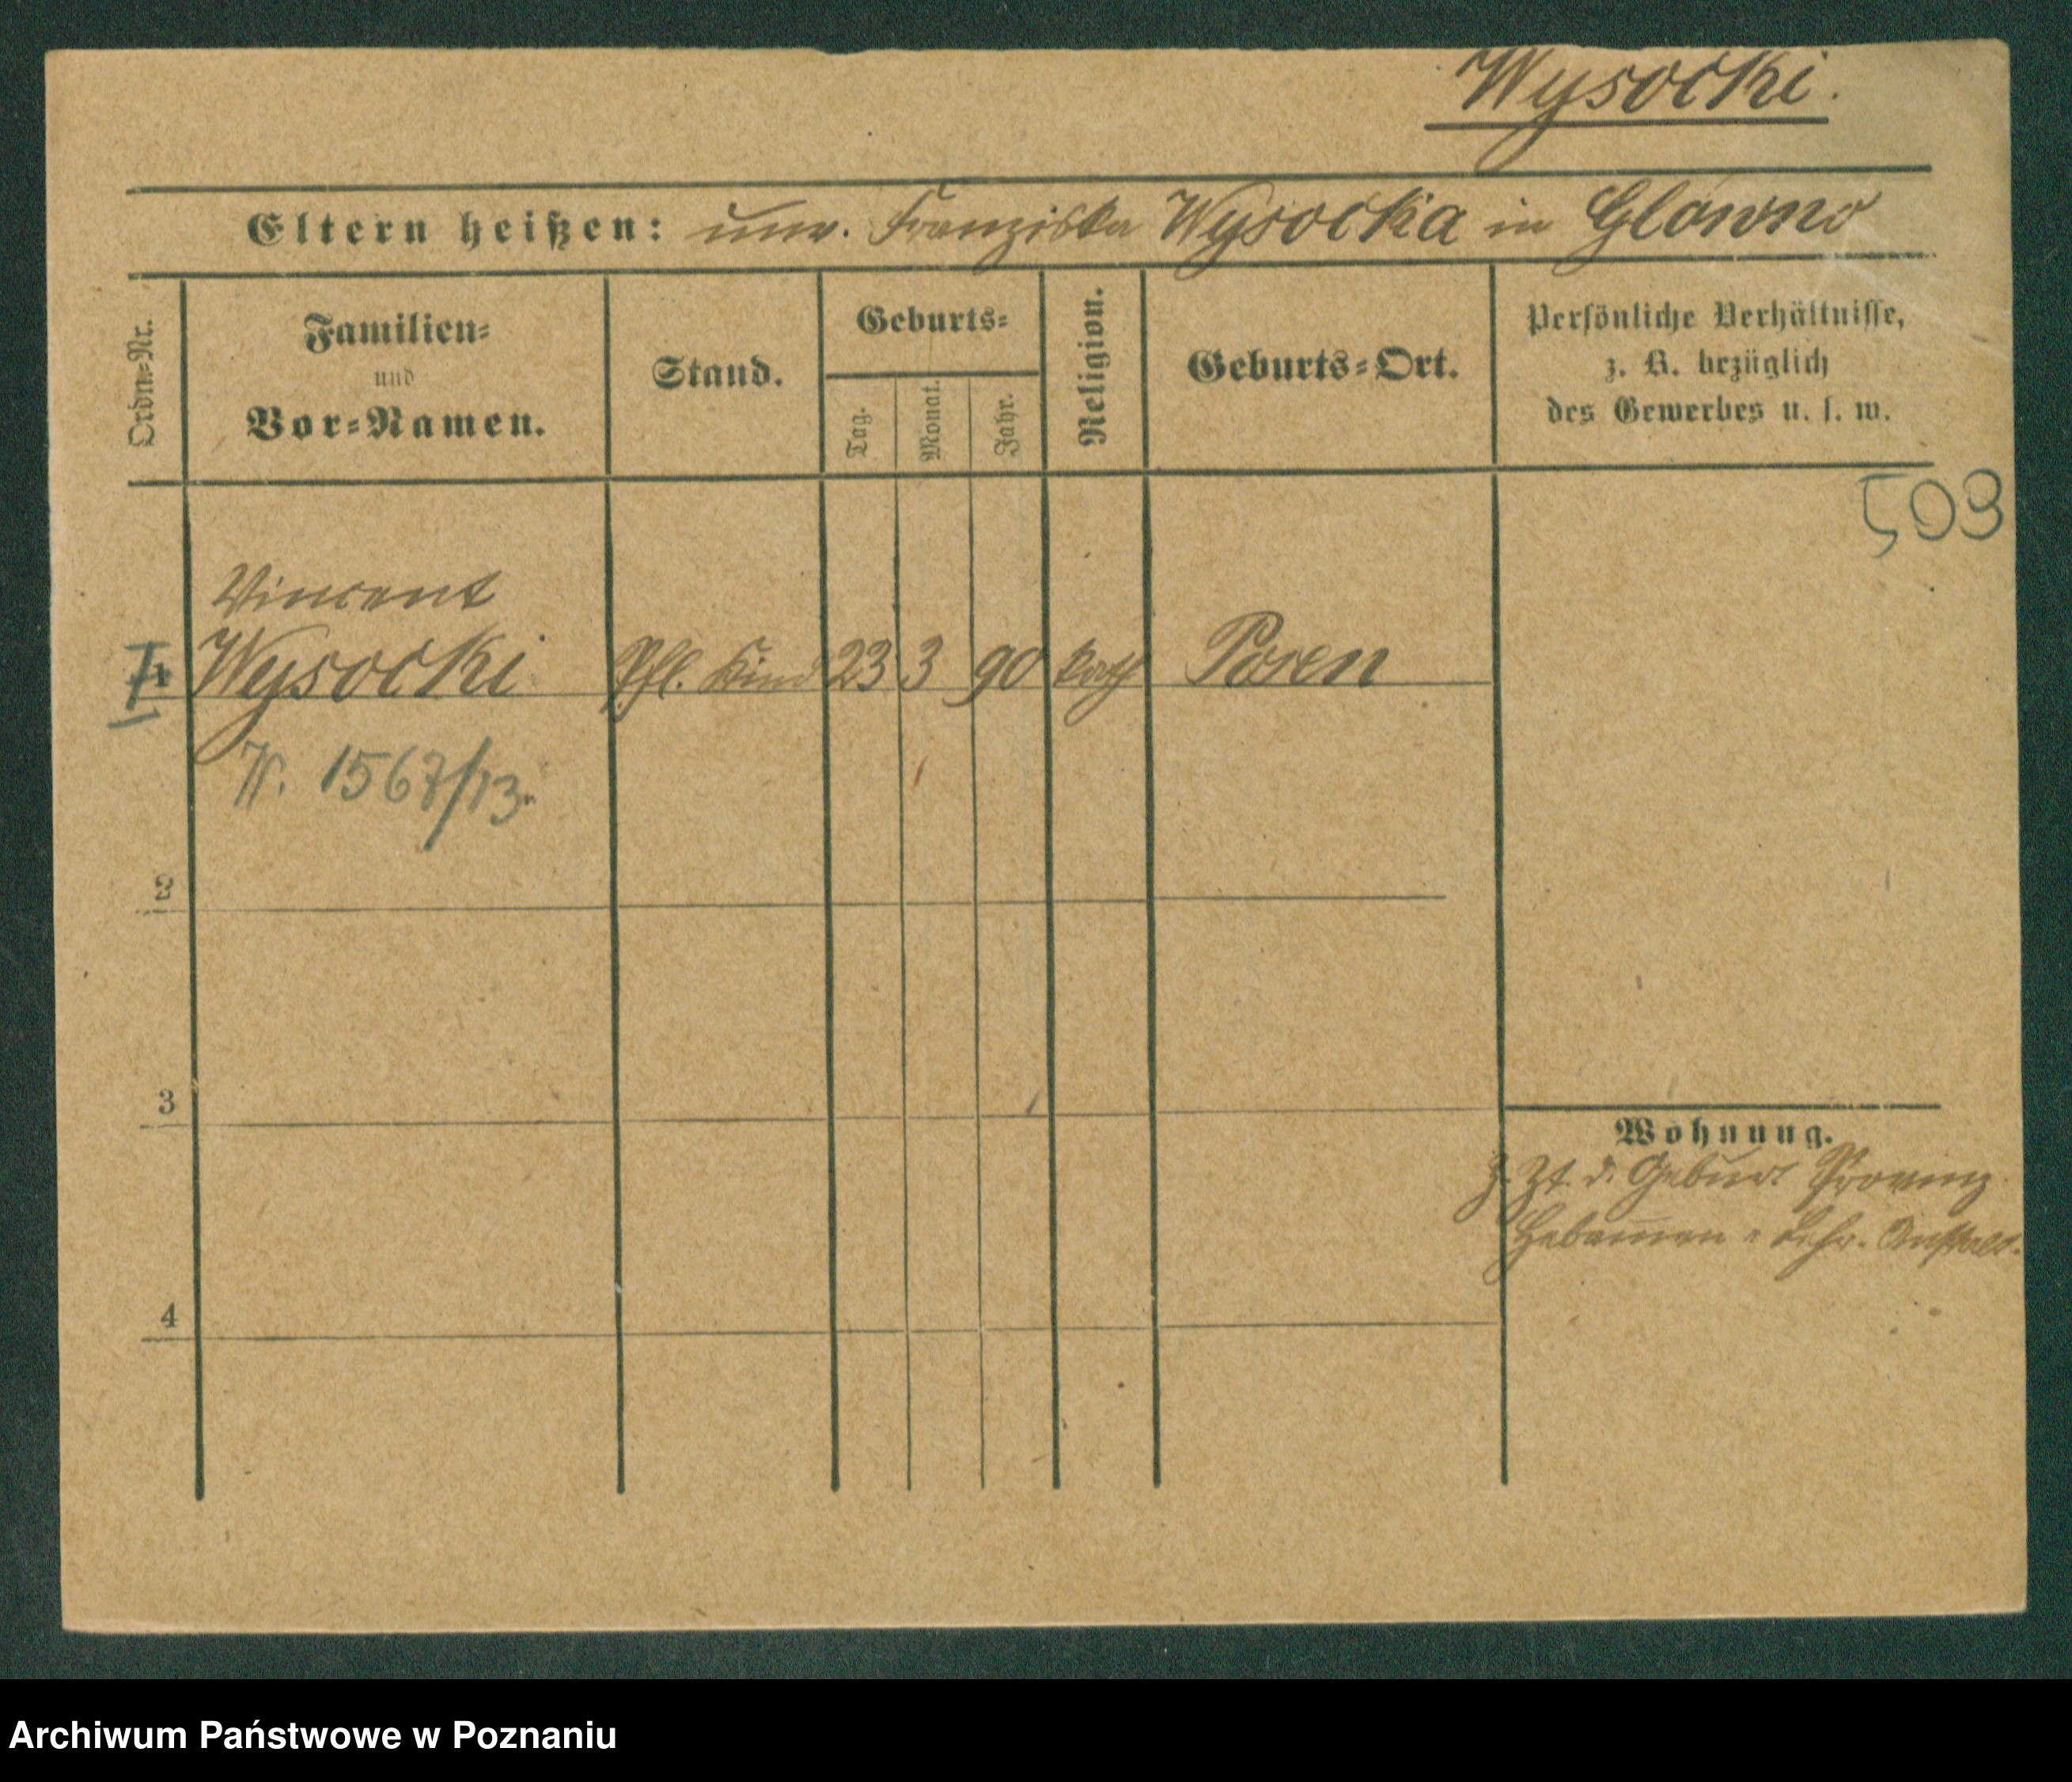 Wysocki.
Eltern heißen: unv. Franziska Wysocka in Glówno
Ordn.-Nr.
Familien-
und
Vor-Namen.
Stand.
Geburts-
Tag.
Monat.
Jahr.
Religion.
Geburts-Ort.
Persönliche Verhältnisse,
z. B. bezüglich
des Gewerbes u. s. w.
509
Vincent
1 Wysocki Pfl. Kind 23 3 90 kath Posen
W. 1567/13.
2
3
Wohnung.
z. Zt. d. Geburt Provinz.
Hebammen-Lehr-Anstalt.
4
Archiwum Państwowe w Poznaniu